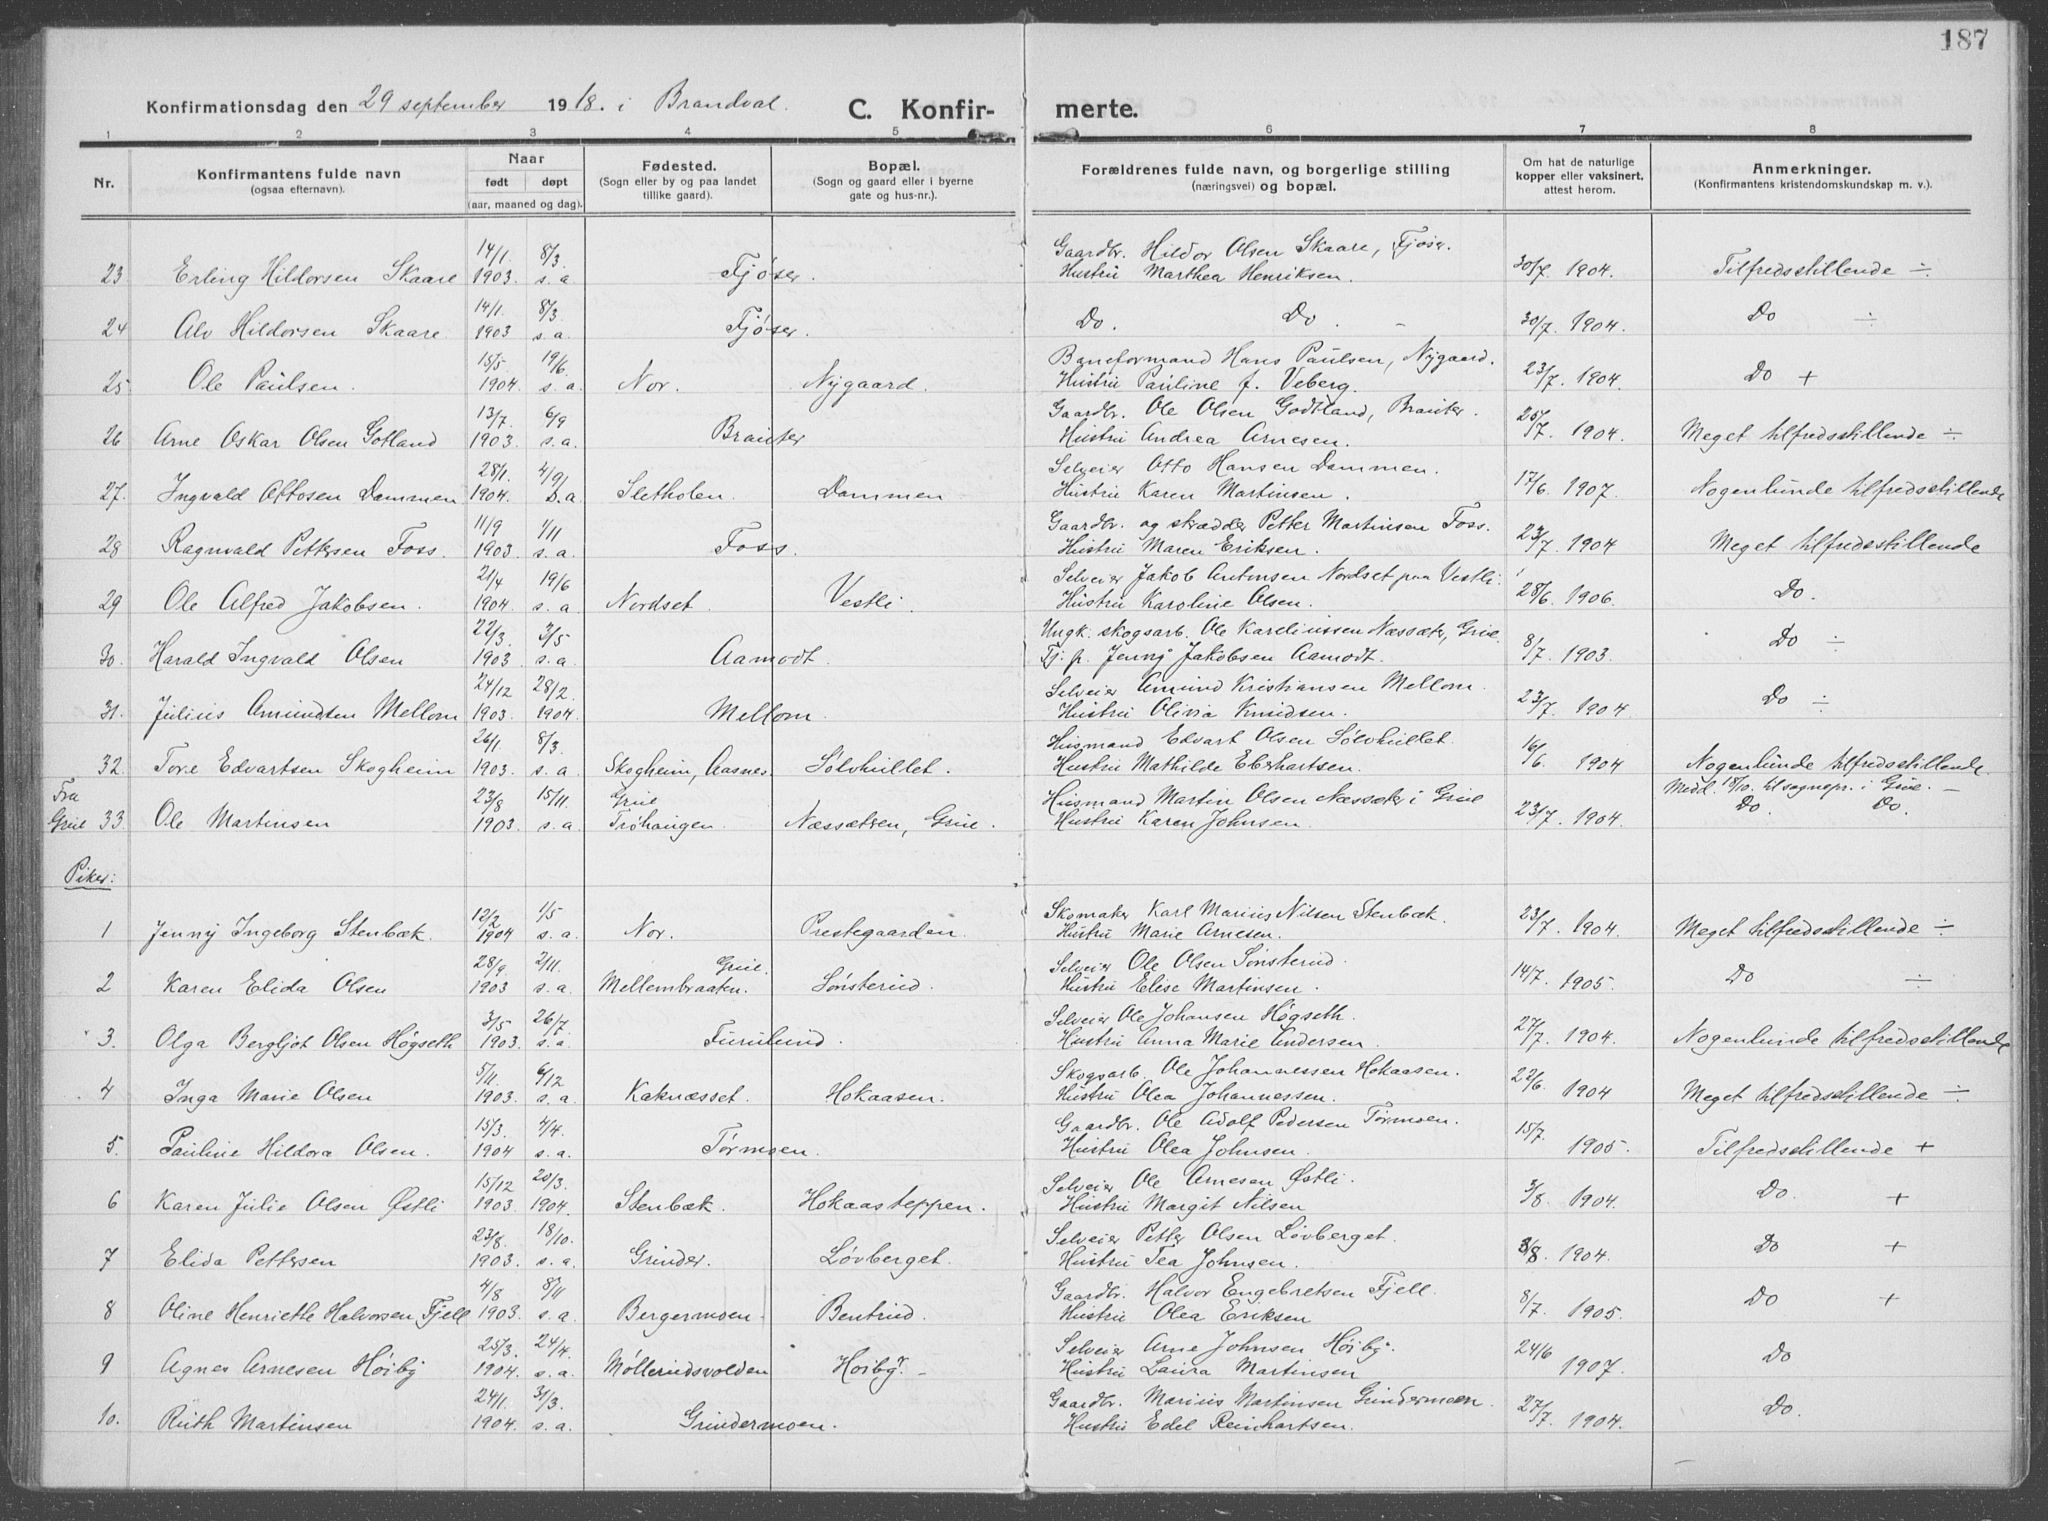 187
Konfirmationsdag den 29 september 1918. i Brandval. C. Konfirmerte.
1 2 3 4 5 6 7 8
Nr. Konfirmantens fulde navn (ogsaa efternavn). Naar født døpt (aar, maaned og dag). Fødested. (Sogn eller by og paa landet tillike gaard). Bopæl. (Sogn og gaard eller i byerne gate og hus-nr.). Forældrenes fulde navn, og borgerlige stilling (næringsvei) og bopæl. Om hat de naturlige kopper eller vaksinert, attest herom. Anmerkninger. (Konfirmantens kristendomskundskap m. v.).
14/1. 8/3. Gaardbr. Hildor Olsen Skaare, Fjøser.
23 Erling Hildorsen Skaare 1903. s. a. Fjøser. Hustru Marthea Henriksen. 30/7. 1904. Tilfredsstillende ÷
14/1. 8/3.
24 Alv Hildorsen Skaare 1903 s. a. Fjøser. Do. Do. - 30/7. 1904. Do ÷
15/5. 19/6. Baneformand Hans Paulsen, Nygaard.
25 Ole Paulsen. 1904. s. a. Nor. Nygaard. Hustru Pauline f. Veberg. 23/7. 1904. Do +
13/7. 6/9 Gaardbr. Ole Olsen Godtland, Brauter.
26 Arne Oskar Olsen Gotland 1903. s. a. Brauter Hustru Andrea Arnesen. 25/7. 1904. Meget tilfredsstillende ÷
28/1. 4/9 Selveier Otto Hansen Dammen.
27. Ingvald Ottosen Dammen 1904. s. a. Sletholen. Dammen Hustru Karen Martinsen. 17/6. 1907. Nogenlunde tilfredsstillende
11/9 1/11 Gaardbr. og skrædder Petter Martinsen Foss.
28 Ragnvald Pettersen Foss. 1903. s. a. Foss. Hustru Maren Eriksen. 23/7. 1904 Meget tilfredsstillende
21/4 19/6 Selveier Jakob Antonsen Nordset paa Vestli.
29 Ole Alfred Jakobsen. 1904. s. a. Nordset. Vestli. Hustru Karoline Olsen. 28/6. 1906. Do.
22/3. 3/5 Ungk. skogsarb. Ole Karelinssen Næssæter, Grue
30. Harald Ingvald Olsen 1903. s. a. Aamodt. Tj. p. Jenny Jakobsen Aamodt. 8/7. 1903. Do ÷
24/12 28/2. Selveier Amund Kristiansen Mellom.
31. Julius Amundsen Mellom 1903. 1904. Mellom. Hustru Olivia Knudsen. 23/7. 1904 Do ÷
26/1 8/3. Husmand Edvart Olsen Sølvhullet.
32. Tore Edvartsen Skogheim 1903. s. a. Skogheim, Aasnes. Sølvhullet. Hustru Mathilde Eberhartsen. 16/6. 1904 Nogenlunde tilfredsstillende.
Fra 23/8 15/11. Grue Husmand Martin Olsen Næssæter i Grue Medl. 18/10. til sognepr. i Grue. -
Grue 33. Ole Martinsen 1903. s. a. Trøhaugen. Næssætren, Grue. Hustru Karen Johnsen. 23/7. 1904. Do Do.
Piker:
12/2 1/5 Skomaker Karl Marius Nilsen Stenbæk.
1 Jenny Ingeborg Stenbæk. 1904 s. a. Nor. Prestegaarden. Hustru Marie Arnesen. 23/7. 1904. Meget tilfredsstillende ÷
28/9. 2/11. Grue. Selveier Ole Olsen Sønsterud.
2 Karen Elida Olsen 1903 s. a. Mellembraaten. Sønsterud. Hustru Elise Martinsen. 14/7. 1905. Do ÷
3/5 26/7 Selveier Ole Johansen Høgseth.
3. Olga Bergljot Olsen Høgseth 1903. s. a. Furulund. Hustru Anna Marie Andersen. 27/7. 1904. Nogenlunde tilfredsstillende
5/11. 6/12 Skogsarb. Ole Johannessen Hokaasen.
4 Inga Marie Olsen 1903. s. a. Kaknæsset. Hokaasen. Hustru Olea Johannessen. 22/6. 1904 Meget tilfredsstillende ÷
15/3. 4/4. Gaardbr. Ole Adolf Pedersen Tørmoen.
5. Pauline Hildora Olsen. 1904 s. a. Tørmoen. Hustru Olea Johnsen. 15/7. 1905. Tilfredsstillende +
15/12 20/3. Selveier Ole Arnesen Østli.
6 Karen Julie Olsen Østli 1903. 1904. Stenbæk. Hokaasteppen. Hustru Margit Nilsen 3/8. 1904. Do. +
23/8. 18/10. Selveier Petter Olsen Løvberget.
7 Elida Pettersen 1903. s. a. Grinder. Løvberget. Hustru Tea Johnsen. 3/8. 1904. Do +
4/8 8/11 Gaardbr. Halvor Engebretsen Fjell.
8 Oline Henriette Halvorsen Fjell 1903. s. a. Bergermoen. Bentrud. Hustru Olea Eriksen 8/7. 1905. Do +
25/3. 24/4. Selveier Arne Johnsen Høiby.
9 Agnes Arnesen Høiby 1904. s. a. Møllerudsvolden Høiby. - Hustru Laura Martinsen 24/6 1907. Do
24/1. 31/3. Gaardbr. Marius Martinsen Grindermoen.
10. Ruth Martinsen 1904. s. a. Grindermoen. Hustru Edel Reinhartsen. 27/7. 1904. Do.